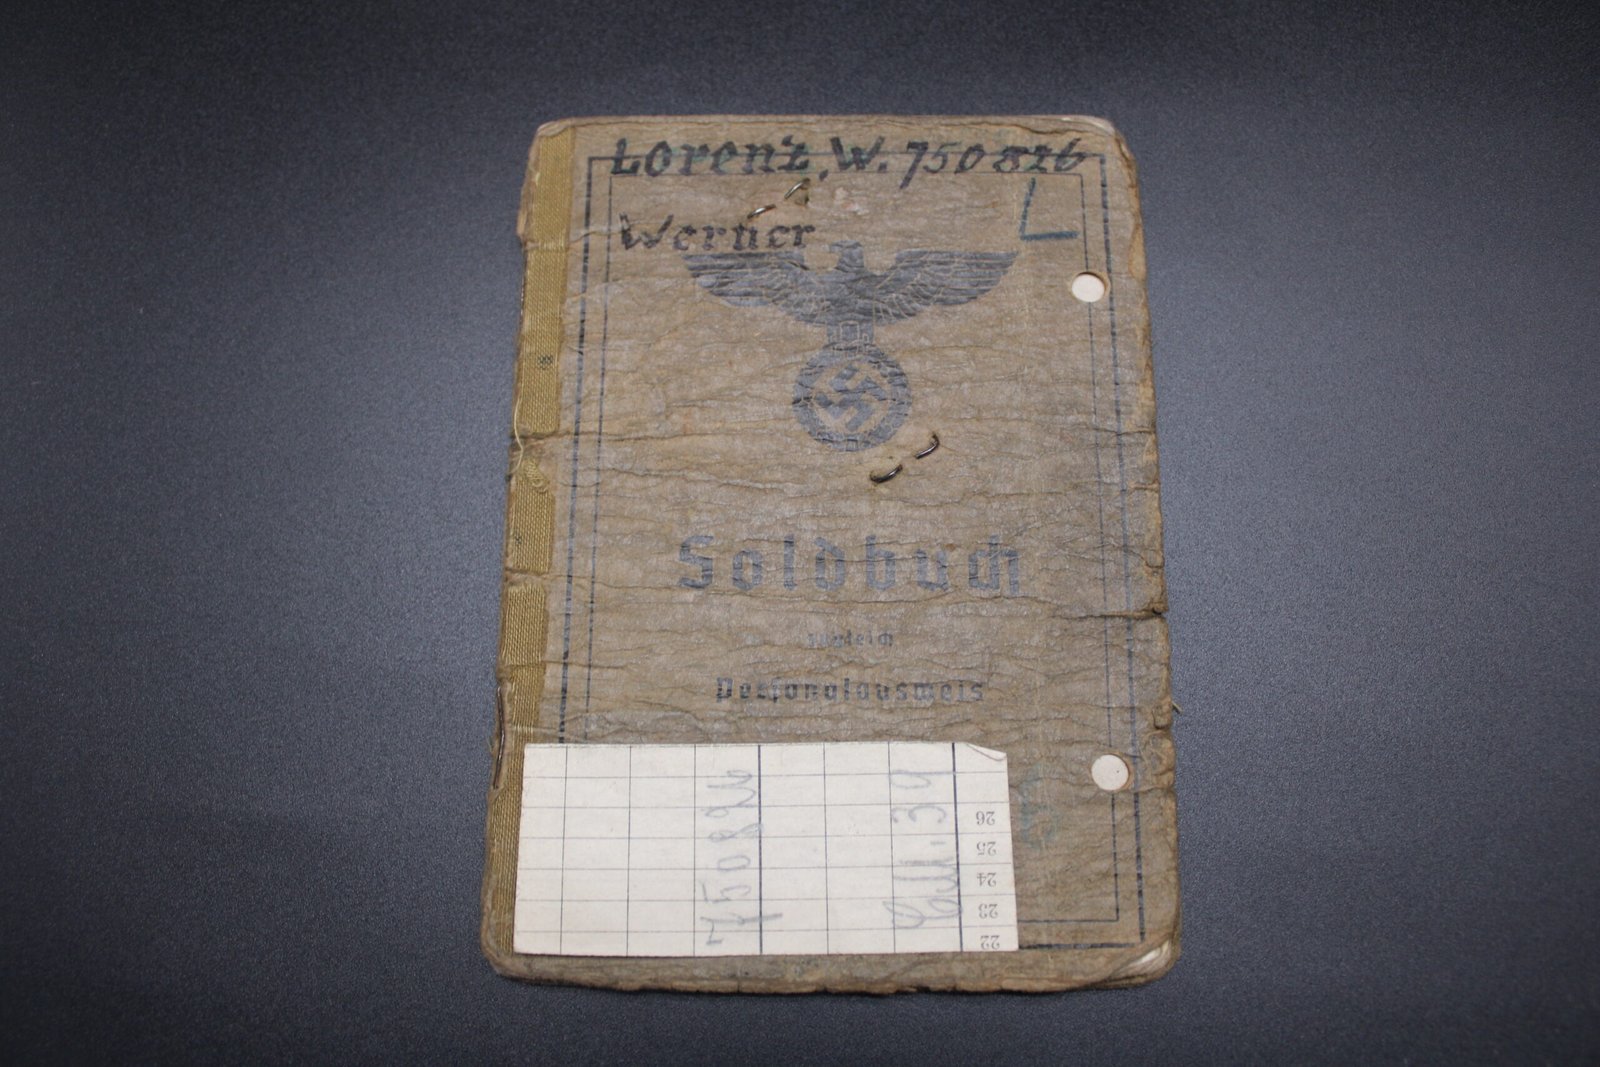 Lorenz, W. 750826
L
Werner
Soldbuch
zugleich
Personalausweis
750826
26
25
24
23
22